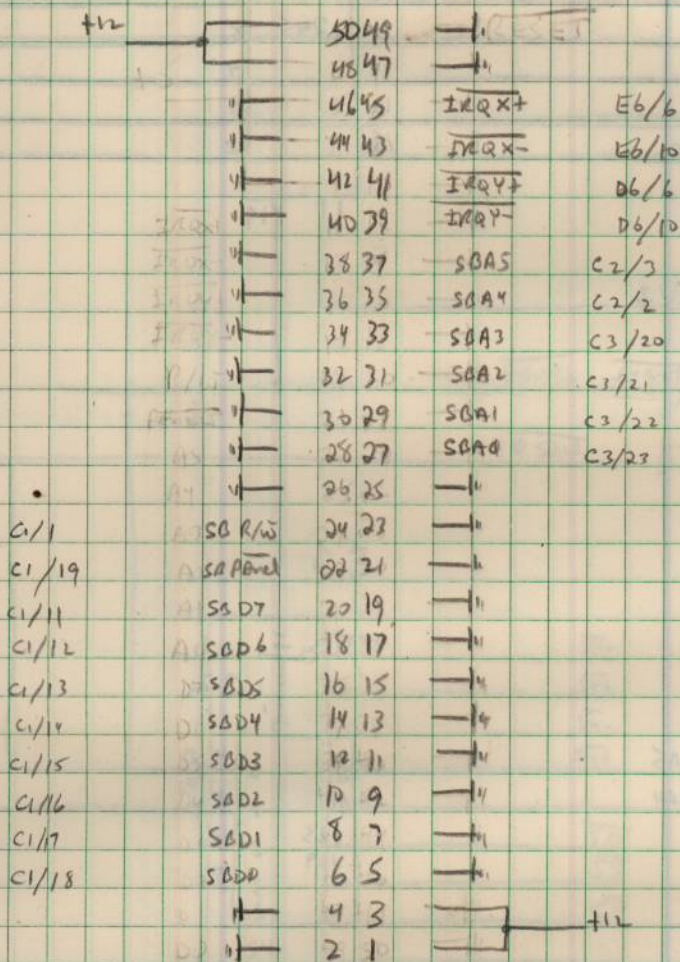 +12 50 49
48 47
46 45 IRQX+ E6/6
44 43 IRQX- E6/10
42 41 IRQY+ D6/6
40 39 IRQY- D6/10
38 37 SBA5 C2/3
36 35 SBA4 C2/2
34 33 SBA3 C3/20
32 31 SBA2 C3/21
30 29 SBA1 C3/22
28 27 SBA0 C3/23
26 25
C1/1 SB R/W 24 23
C1/19 22 21
C1/11 SBD7 20 19
C1/12 SBD6 18 17
C1/13 SBD5 16 15
C1/14 SBD4 14 13
C1/15 SBD3 12 11
C1/16 SBD2 10 9
C1/17 SBD1 8 7
C1/18 SBD0 6 5
4 3 +12
2 1